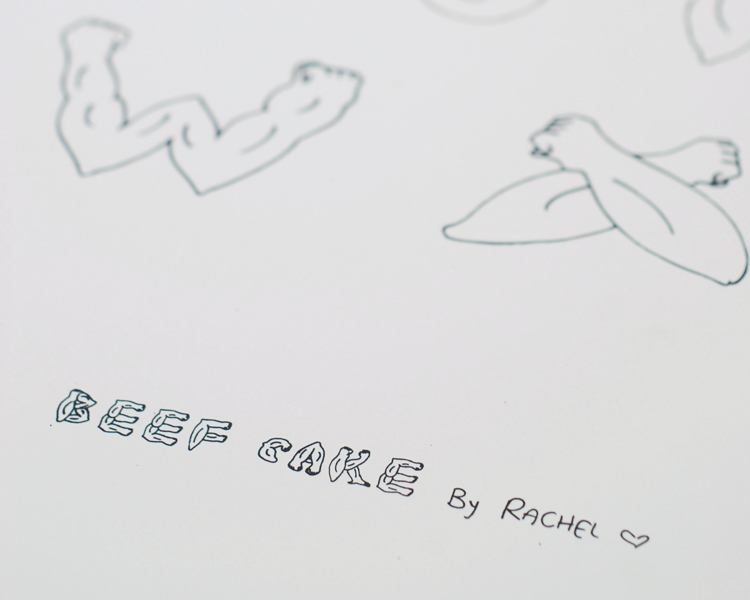 W X
BEEF CAKE By RACHEL ♡